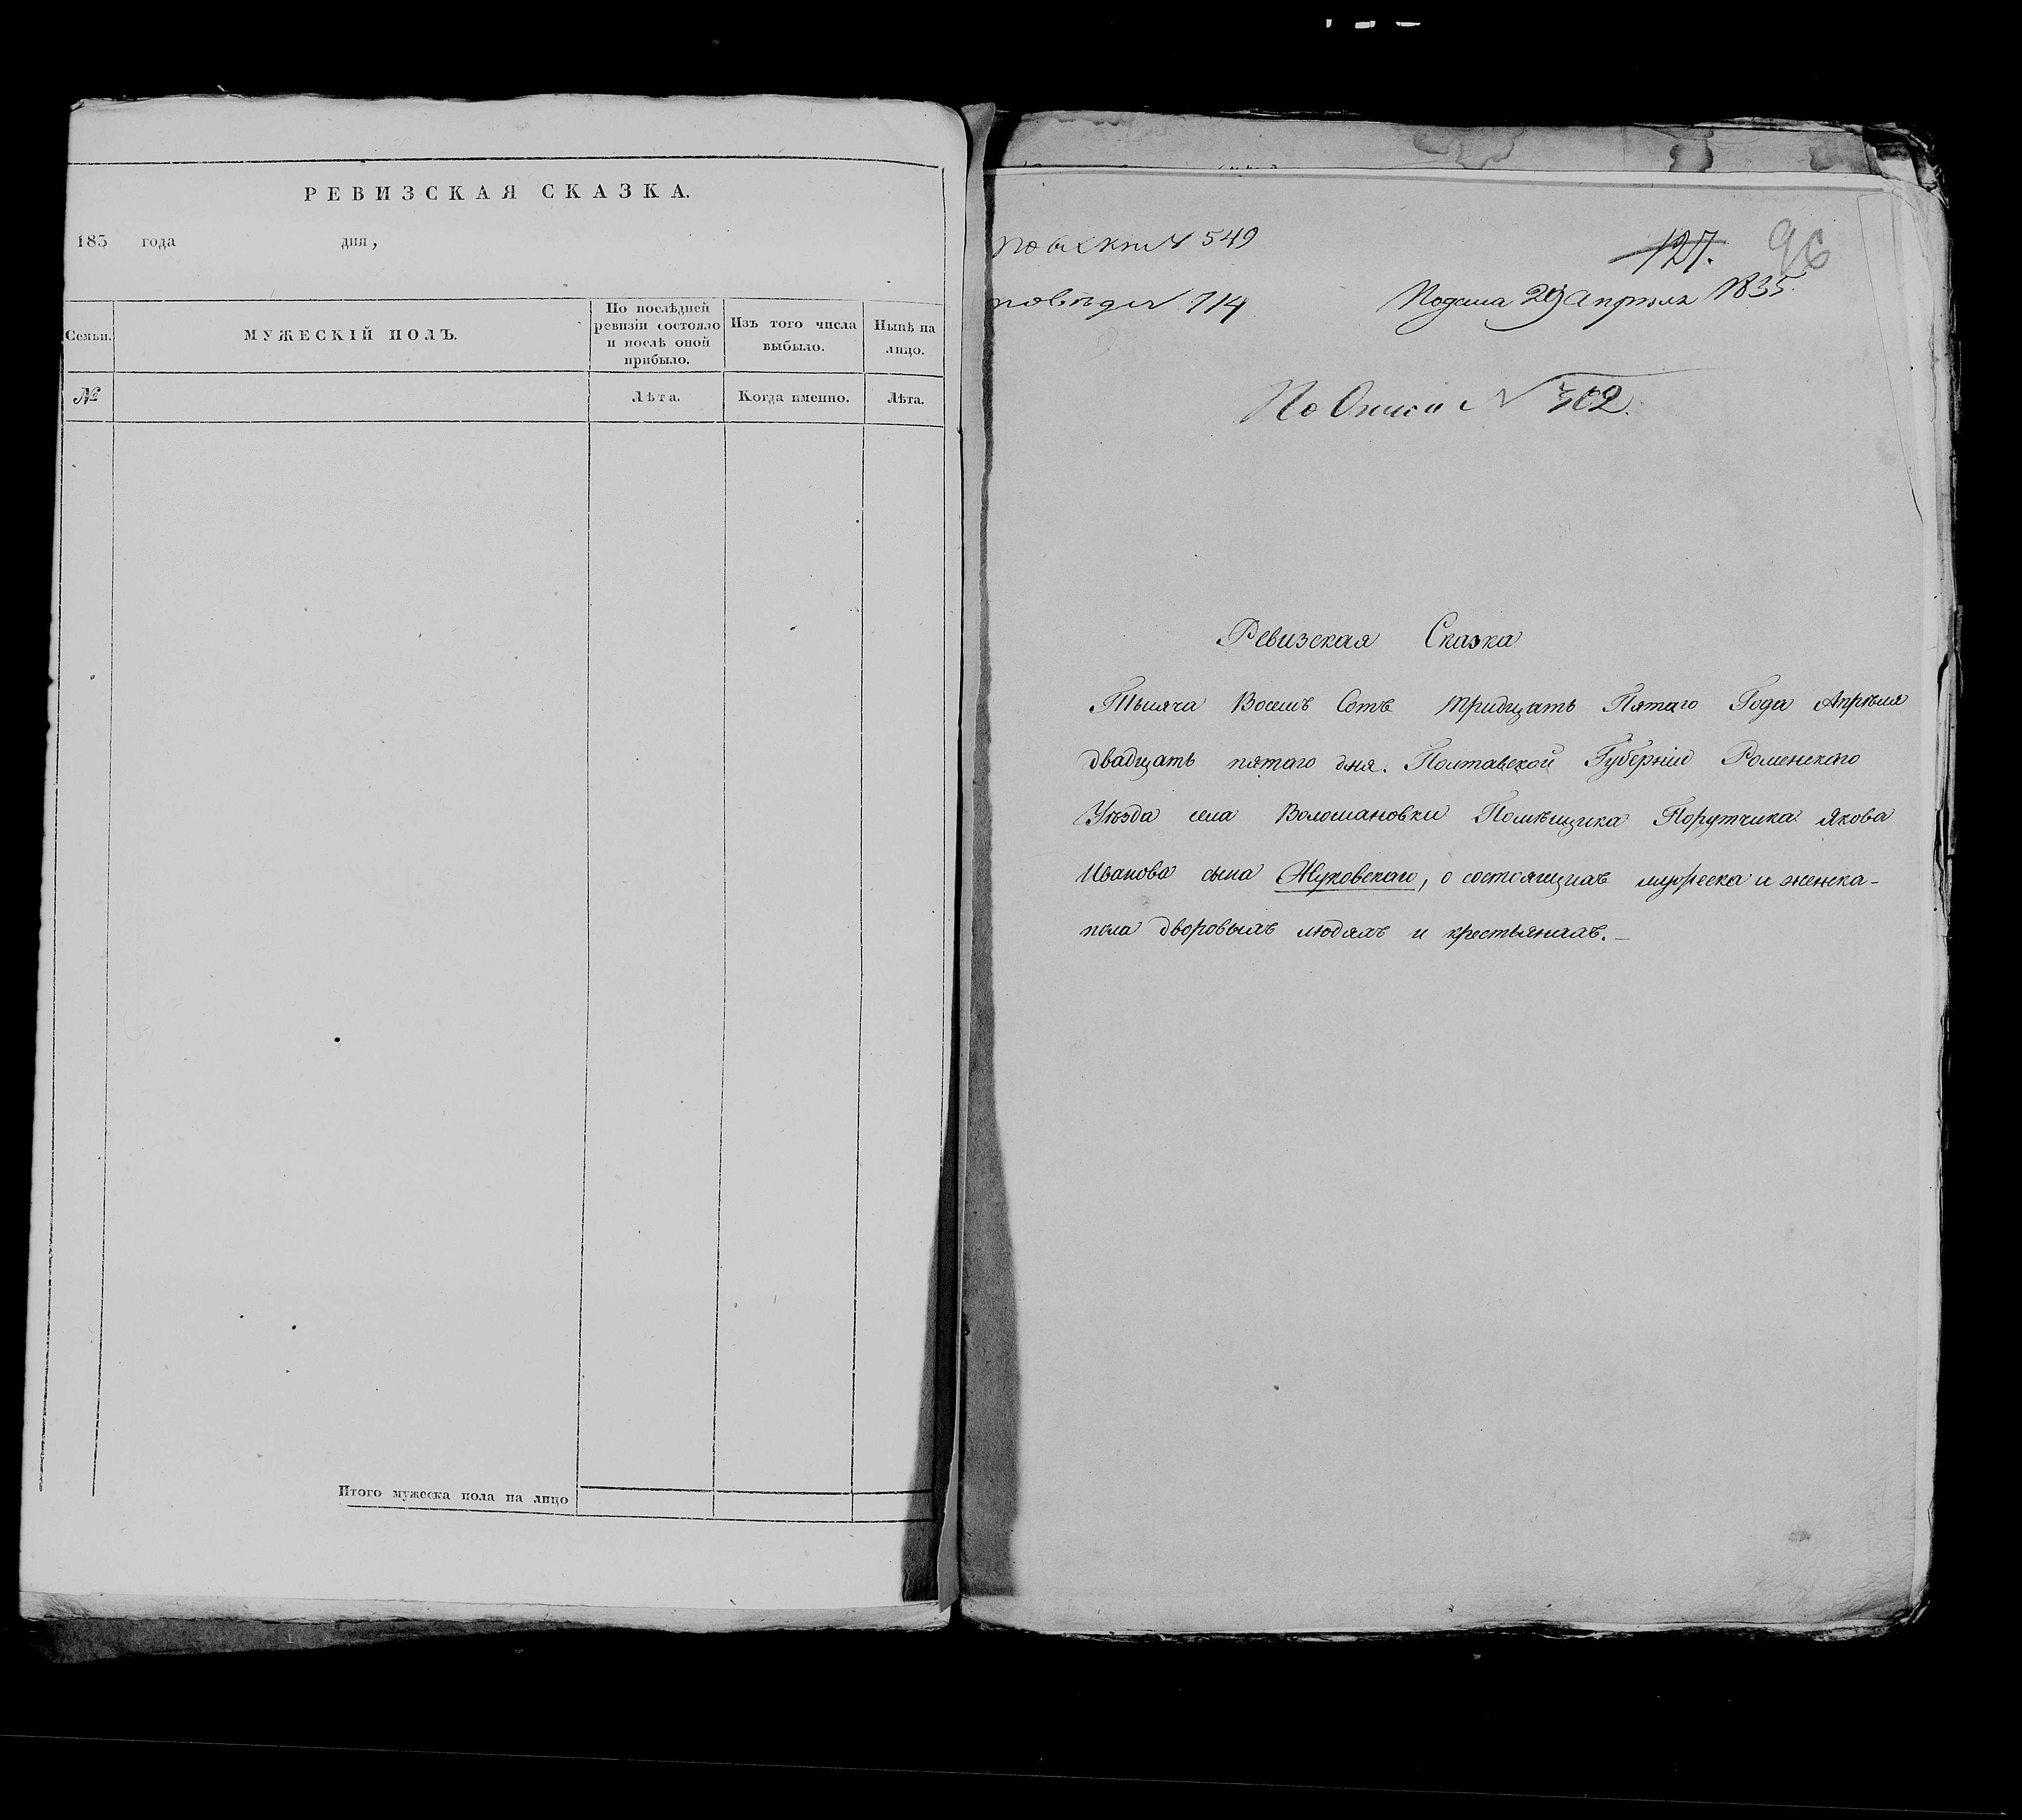 РЕВИЗСКАЯ СКАЗКА.
183 года дня,
Семьи.
МУЖЕСКІЙ ПОЛЪ.
По послѣдней ревизіи состояло и послѣ оной прибыло.
Изъ того числа выбыло.
Нынѣ на лицо.
№
Лѣта.
Когда именно.
Лѣта.
Итого мужеска пола на лицо
№ 549
127.
96
№ 114
Подана 29 Апреля 1835.
По Описи № 302.
Ревизская Сказка
Тысяча Восемъ Сотъ тридцать Пятаго Года Апрѣля
двадцать пятаго дня. Полтавской Губерніи Роменскаго
Уѣзда села Волошановки Помѣщика Порутчика Якова
Иванова сына Жуковскаго, о состоящихъ мужеска и женска-
пола дворовыхъ людяхъ и крестьянахъ.